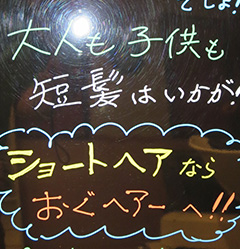 でしょ!
大人も子供も
短髪はいかが!
ショートヘアなら
おぐヘアーへ!!